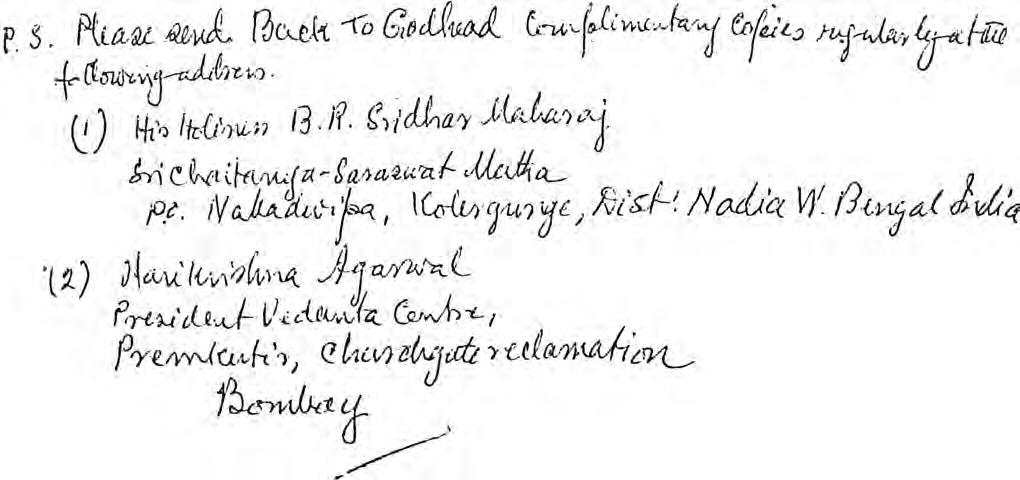 P.S. Please send Back To Godhead Complimentary Copies regularly at the
following address.
(1) His Holiness B.R. Sridhar Maharaj
Sri Chaitanya-Saraswat Matha
po. Nabadwipa, Kolergunge, Dist: Nadia W. Bengal India
(2) Harikrishna Agarwal
President Vedanta Centre,
Premkutir, Churchgate reclamation
Bombay